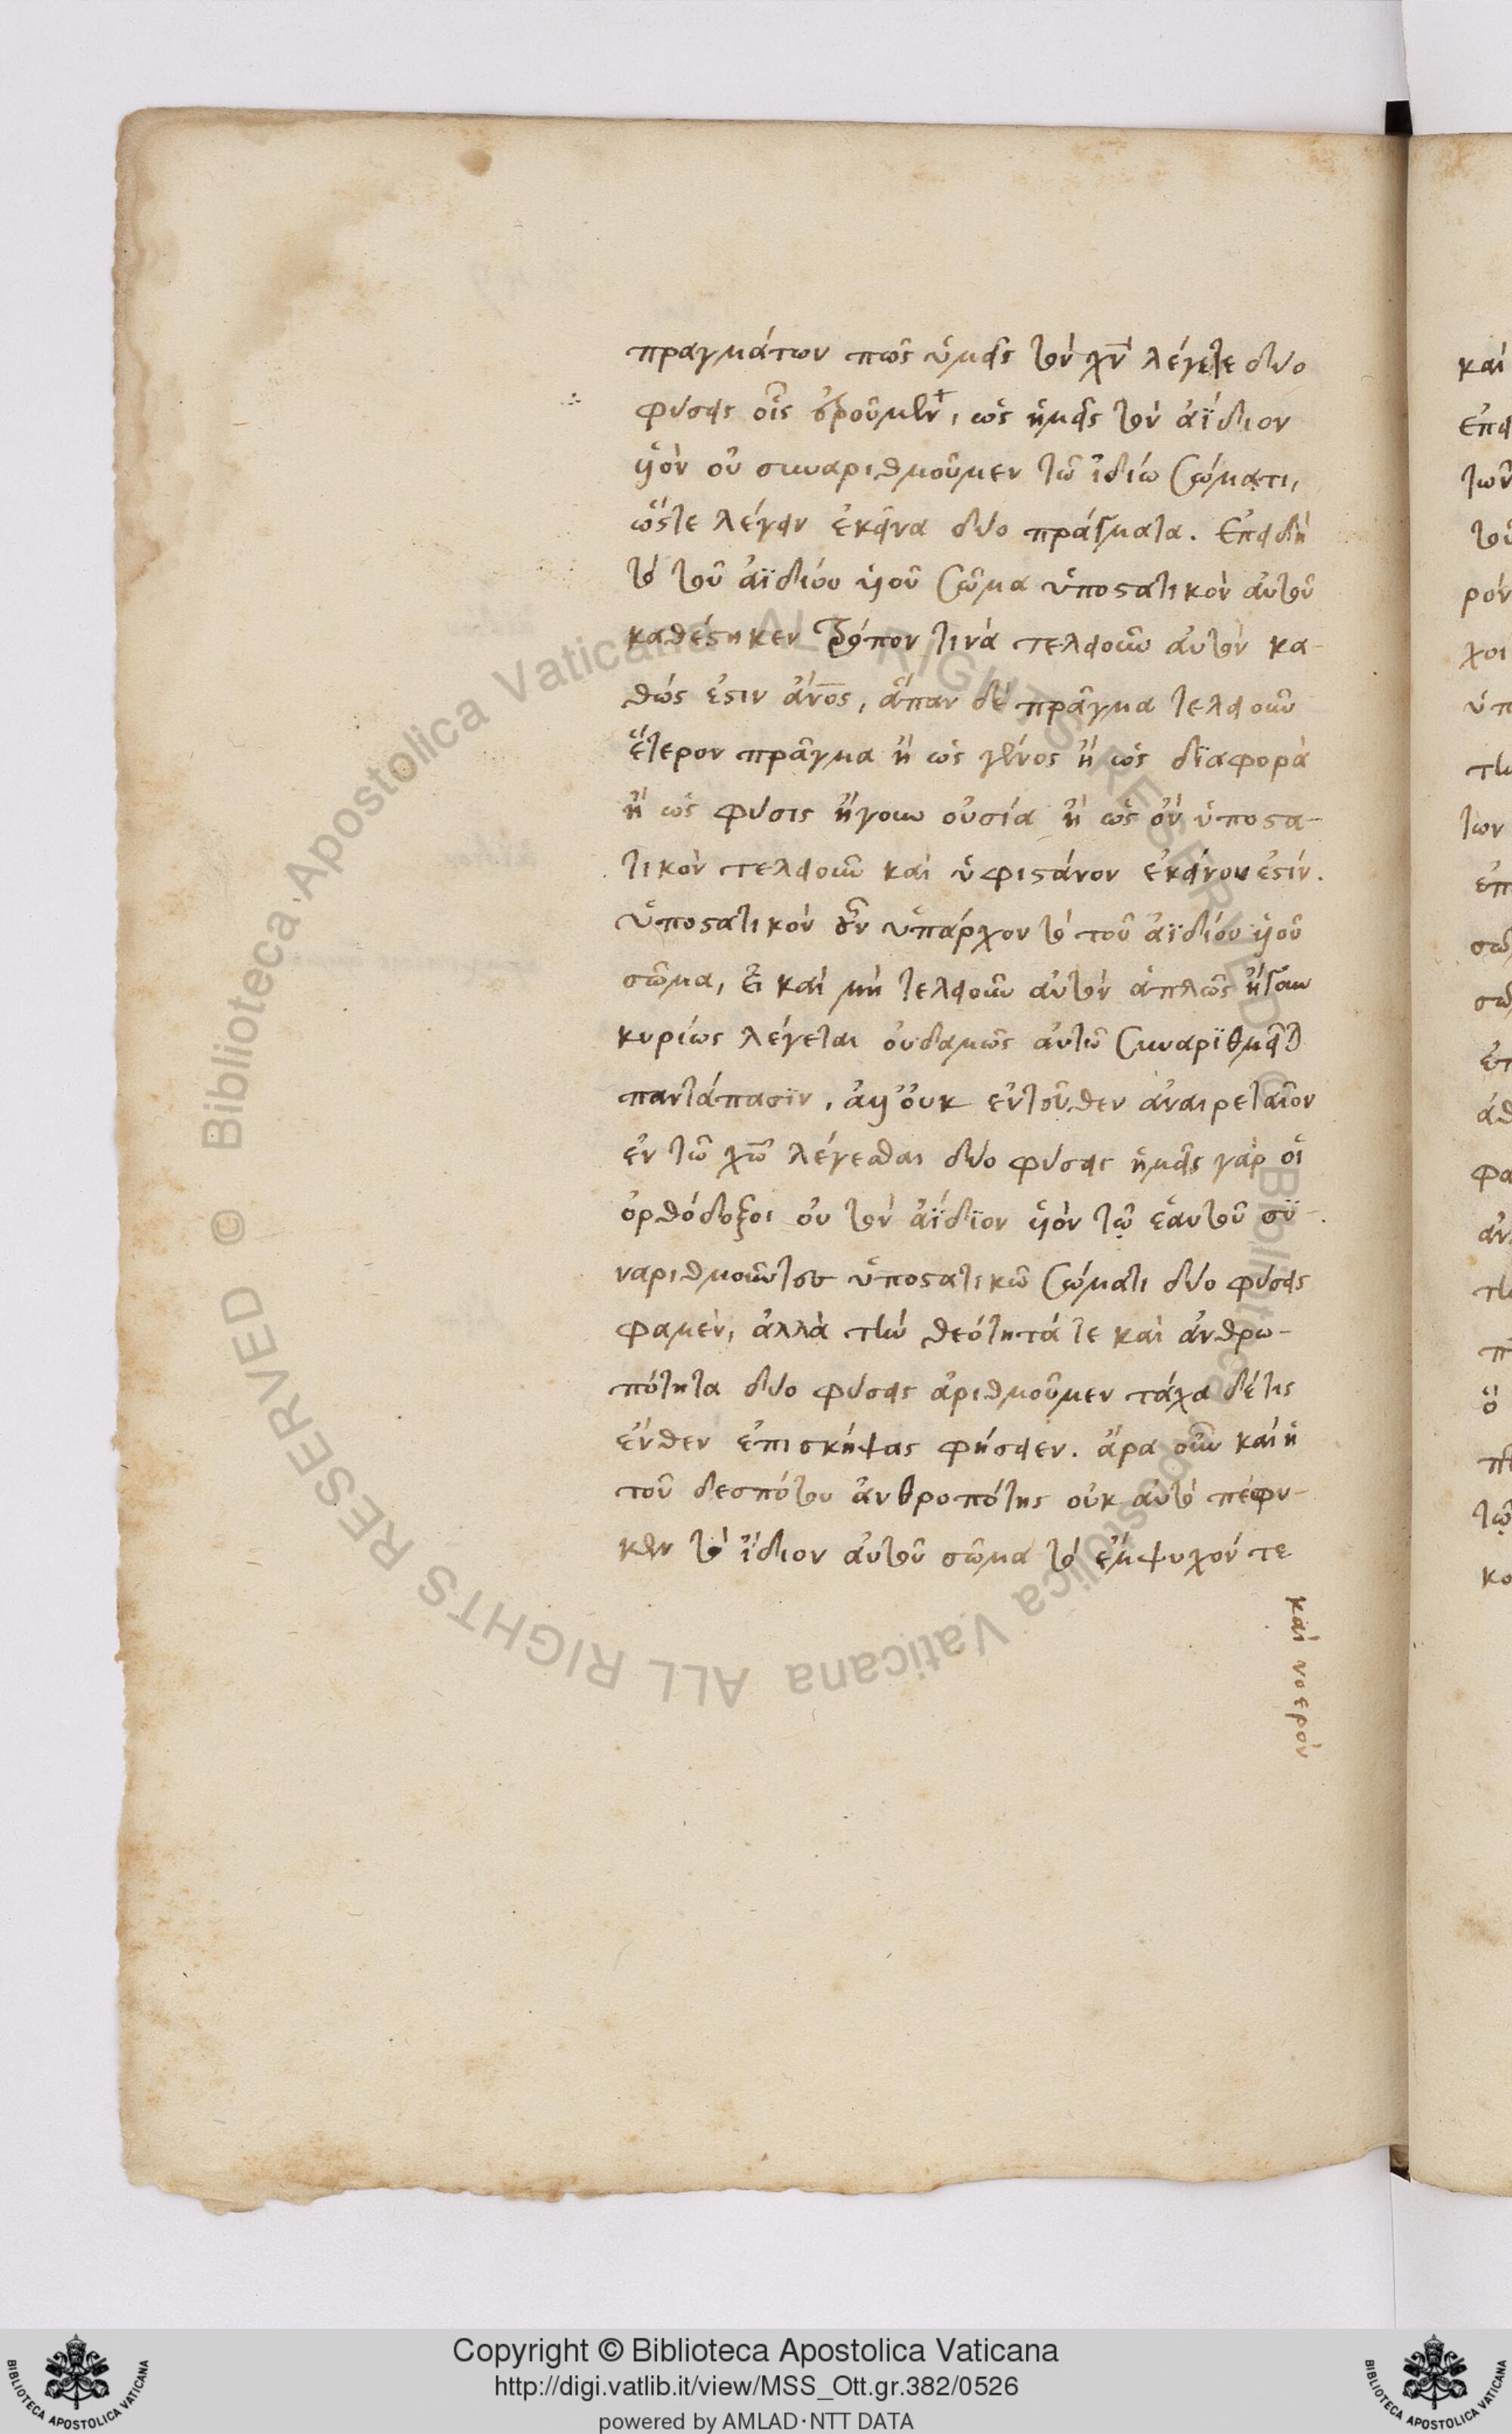 πραγμάτων πῶς ὑμεῖς τὸν χν̅ λέγετε δύο
φύσεις οἷς ἐροῦμεν, ὡς ἡμεῖς τὸν ἀΐδιον
υἱὸν οὐ συναριθμοῦμεν τῶ ἰδίω σώματι,
ὥστε λέγειν ἐκεῖνα δύο πράγματα. Ἐπειδὴ
τὸ τοῦ ἀϊδίου υἱοῦ σῶμα ὑποστατικὸν αὐτοῦ
καθέστηκεν τρόπον τινὰ τελειοῦν αὐτὸν κα-
θώς ἐστιν ἄνο̅ς, ἅπαν δὲ πρᾶγμα τελειοῦν
ἕτερον πρᾶγμα ἢ ὡς γένος ἢ ὡς διαφορὰ
ἢ ὡς φύσις ἤγουν οὐσία ἢ ὡς ὂν ὑποστα-
τικὸν τελειοῦν καὶ ὑφιστάνον ἐκεῖνου ἐστίν.
ὑποστατικὸν οὖν ὑπάρχον τὸ τοῦ ἀϊδίου υἱοῦ
σῶμα, εἰ καὶ μὴ τελειοῦν αὐτὸν ἁπλῶς ἤγουν
κυρίως λέγεται οὐδαμῶς αὐτῶ συναριθμεῖται
παντάπασϊν, ἀλλ' οὐκ ἐντοῦθεν ἀναιρεταῖον
ἐν τῶ χω̅ λέγεσθαι δύο φύσεις ἡμεῖς γὰρ οἱ
ὀρθόδοξοι οὐ τὸν ἀΐδϊον υἱὸν τῷ ἑαυτοῦ συ-
ναριθμοῦντες ὑποστατικῶ σώματι δύο φύσεις
φαμὲν, ἀλλὰ τὴν θεότητά τε καὶ ἀνθρω-
πότητα δύο φύσεις ἀριθμοῦμεν τάχα δέ τις
ἔνθεν ἐπισκήψας φήσειεν. ἆρα οὖν καὶ ἡ
τοῦ δεσπότου ἀνθροπότης οὐκ αὐτὸ πέφυ-
κεν τὸ ἴδιον αὐτοῦ σῶμα τὸ ἔμψυχόν τε
καὶ νοερὸν
Copyright © Biblioteca Apostolica Vaticana
http://digi.vatlib.it/view/MSS_Ott.gr.382/0526
powered by AMLAD·NTT DATA